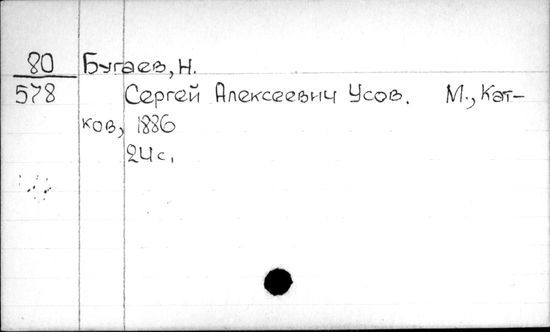 80 Бугаев, Н.
578 Сергей Алексеевич Усов. М., Кат-
ков, 1886
24 с.